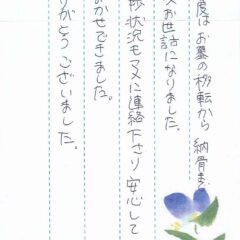 度はお墓の移転から納骨まで
大お世話になりました。
捗状況もマメに連絡下さり安心して
まかせできました。
りがとうございました。